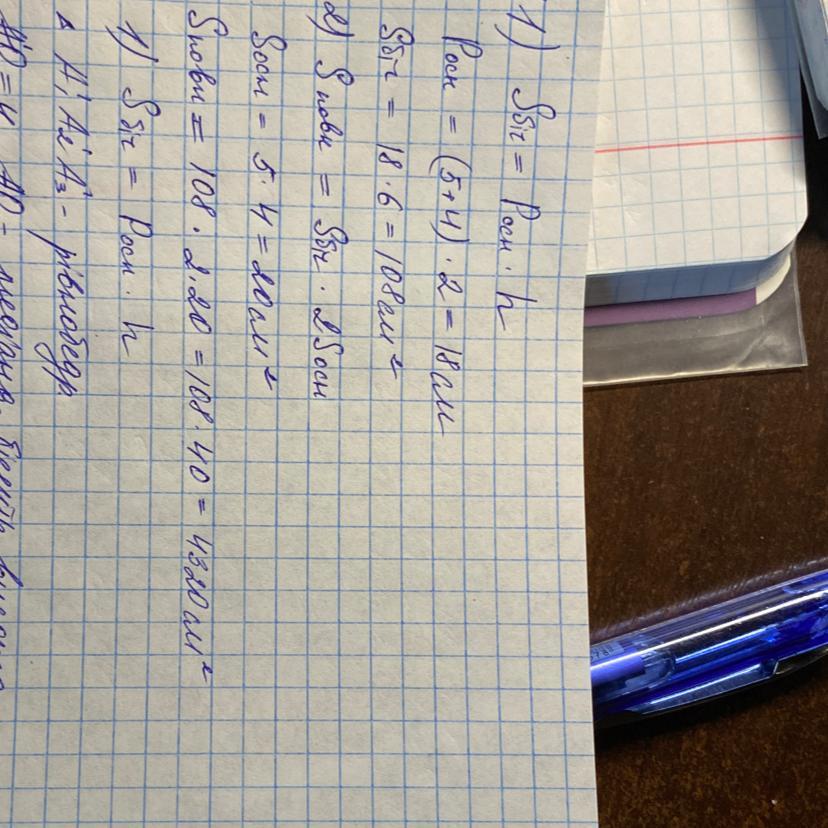 1) Sбіч = Pосн · h
Pосн = (5+4) · 2 = 18 см
Sбіч = 18 · 6 = 108 см²
2) Sповн = Sбіч · 2Sосн
Sосн = 5 · 4 = 20 см²
Sповн = 108 · 2 · 20 = 108 · 40 = 4320 см²
1) Sбіч = Pосн · h
Δ A₁ A₂ A₃ - рівнобедр